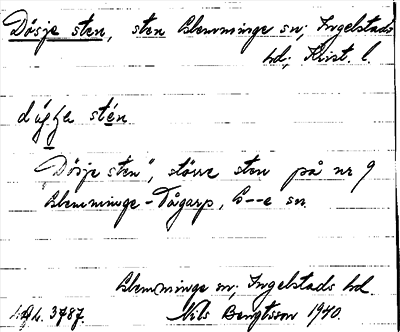 Dösje sten, sten Glemminge sn; Ingelstads
hd; Krist. l.
stén
"Dösje sten", större sten på nr 9
Glemminge-Tågarp, G--e sn.
Glemminge sn; Ingelstads hd.
3787. Nils Bengtsson 1940.